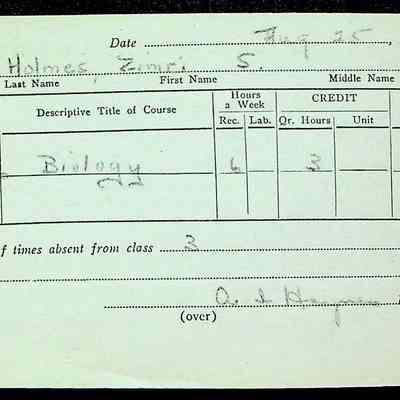 Date Aug 25,
Holmes, Zimri S.
Last Name First Name Middle Name
Descriptive Title of Course Hours a Week CREDIT
Rec. Lab. Qr. Hours Unit
Biology 6 3
f times absent from class 3
(over)